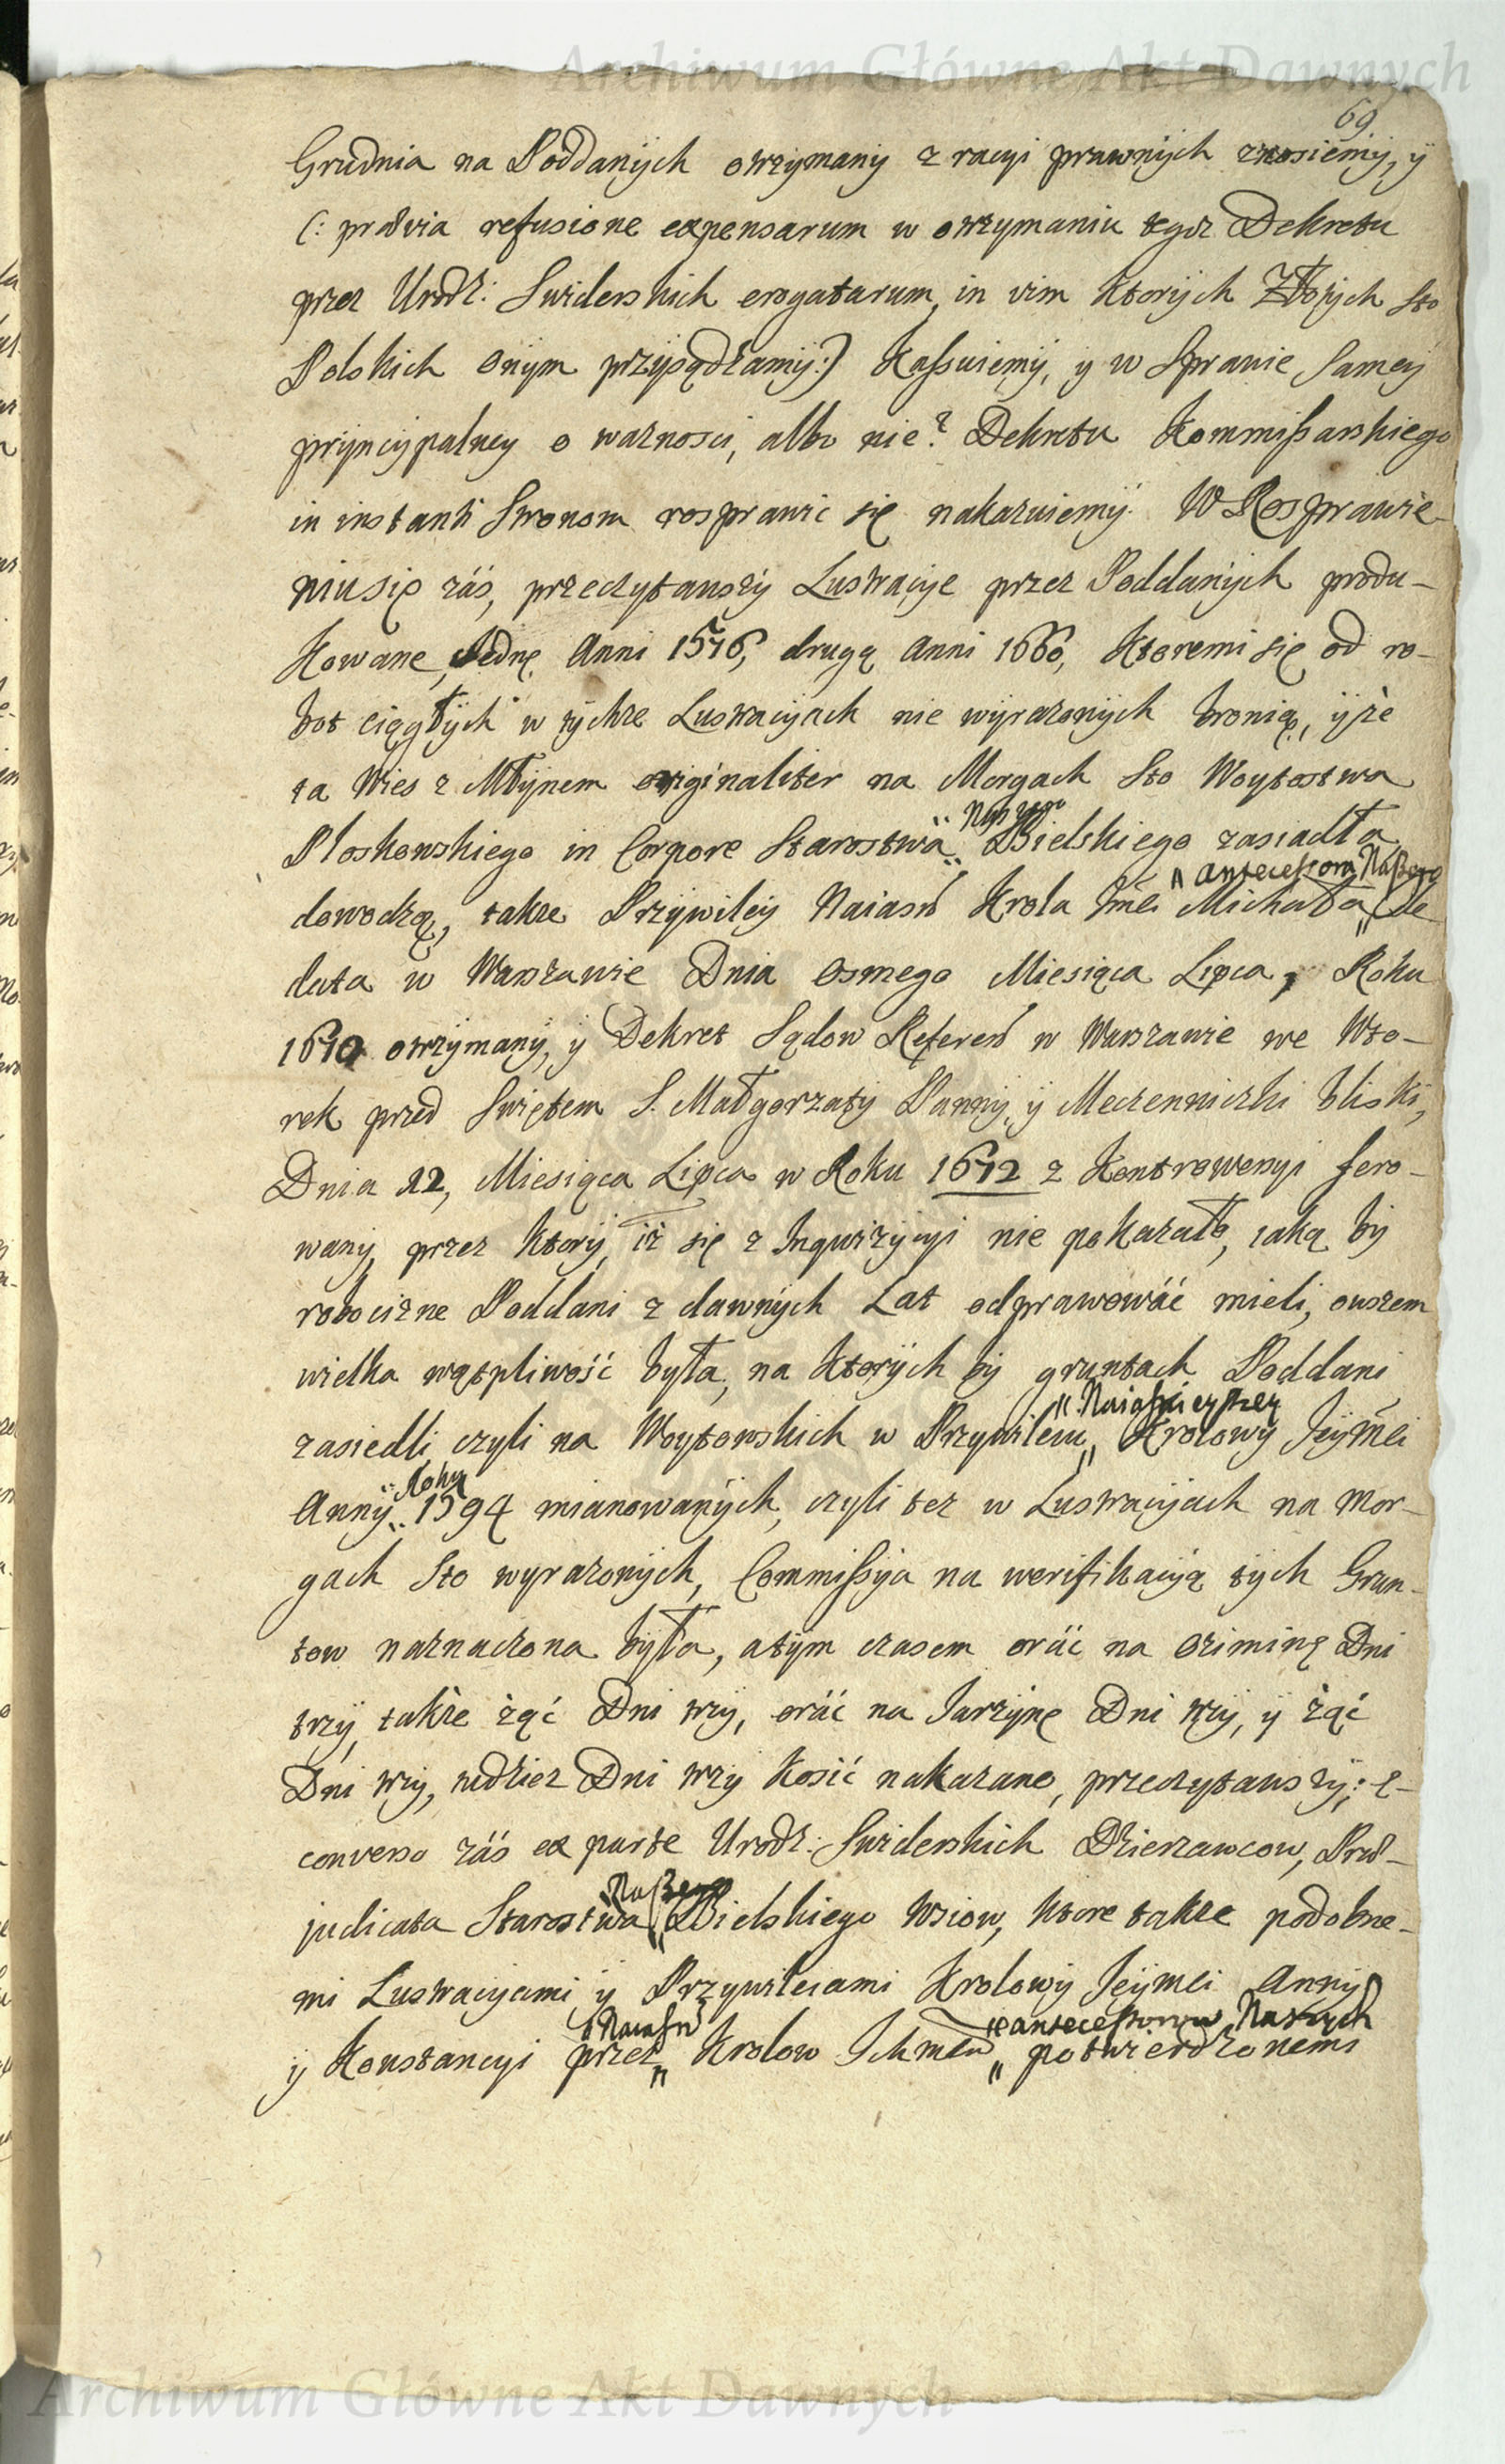 Archiwum Główne Akt Dawnych
69
Grudnia na Poddanÿch otrzÿmanÿ z racÿi prawnÿch znosiemÿ, ÿ
(: prævia refusione expensarum w otrzymaniu tegoż Dekretu
przez Urodz: Swiderskich erogatarum, in vim ktorÿch Złotÿch Sto
Polskich Onÿm przÿsądzamÿ:) Kassuiemÿ, y w Sprawie Samey
prÿncÿpalney o waznosci, albo nie? Dekretu Kommissarskiego
in instanti Stronom rosprawic się nakazuiemÿ. W Rosprawie-
niu się záś, przeczytawszÿ Lustracÿe przez Poddanÿch produ-
kowane, Jednę Anni 1576, drugą Anni 1660, Ktoremi się od ro-
bot ciągłÿch w tÿchze Lustracÿach nie wÿrazonÿch bronią, ÿ że
ta Wies z Młÿnem originaliter na Morgach Sto Woytostwa
Ploskowskiego in Corpore Starostwa Bielskiego zasiadła
Naszego
dowodzą, takze Przÿwileÿ Naiasń Krola Jmći Michała de
antecessora Naszego
data w Warszawie Dnia Osmego Miesiąca Lipca, Roku
1670 otrzÿmanÿ, ÿ Dekret Sądow Refereń w Warszawie we Wto-
rek przed Swiętem S. Małgorzatÿ Pannÿ, ÿ Meczenniczki bliski,
Dnia 12, Miesiąca Lipca w Roku 1672 z Kontrowersyi fero-
wany, przez ktorÿ, iż się z Inquizÿcÿi nie pokazało, iaką bÿ
robociznę Poddani z dawnÿch Lat odprawowáć mieli, owszem
wielka wątpliwość była, na ktorÿch bÿ gruntach Poddani
zasiedli, czyli na Woytowskich w Przywileiu Krolowÿ Jeÿmći
Naiasnieyszey
Annÿ 1594 mianowanÿch, czyli tez w Lustracÿach na Mor-
Roku
gach Sto wyrazonÿch, Commissÿa na werifikacÿą tÿch Grun-
tow naznaczona bÿła, a tÿm czasem oráć na Oziminę Dni
trzÿ, takżе żąć Dni trzÿ, oráć na Jarzÿnę Dni trzÿ, ÿ żąć
Dni trzÿ, tudziez Dni trzy Kosić nakazano, przeczytawszÿ; e-
converso záś ex parte Urodz: Swiderskich Dzierzawcow, Præ-
judicata Starostwa Bielskiego Wsiow, ktore takze podobne-
Naszego
mi Lustracÿami ÿ Przywileiami Krolowÿ Jeÿmći Annÿ
ÿ Konstancyi przez Krolow Ichmćiow potwierdzonemi
Naiasń
antecessorow Naszych
Archiwum Główne Akt Dawnych